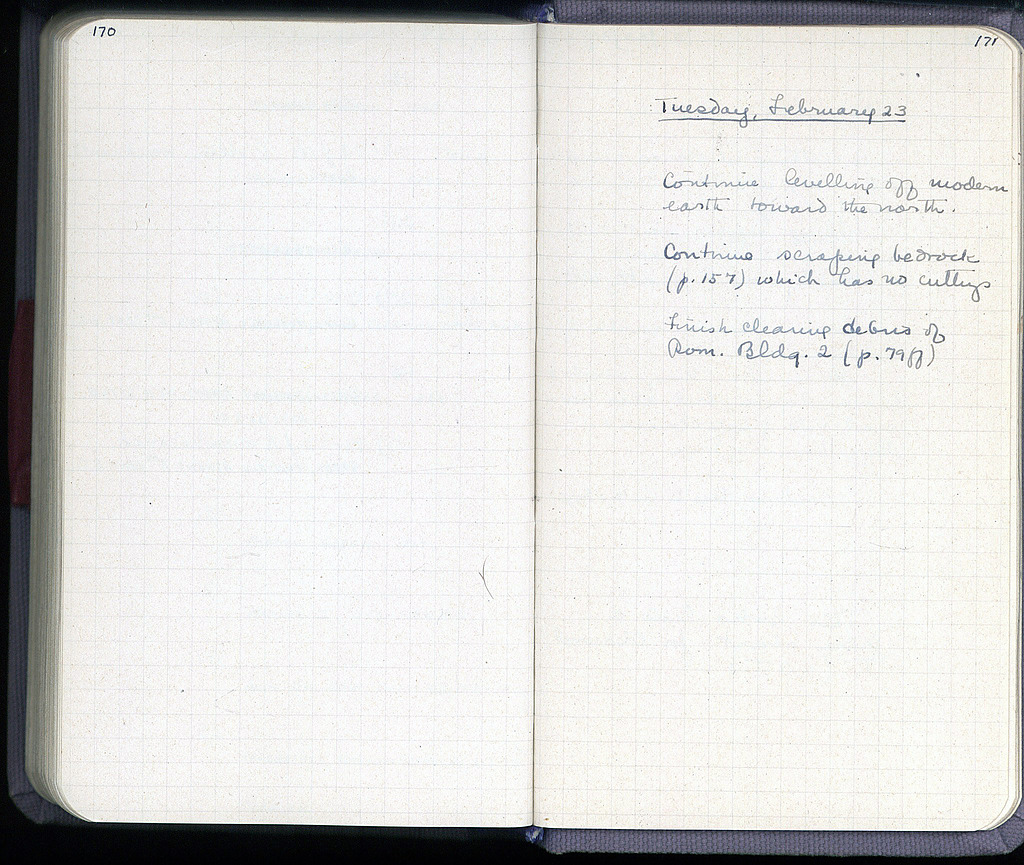 170
171
Tuesday, February 23
Continue levelling off modern
earth toward the north.
Continue scraping bedrock
(p. 157) which has no cuttings
Finish clearing debris of
Rom. Bldg. 2 (p. 79ff)